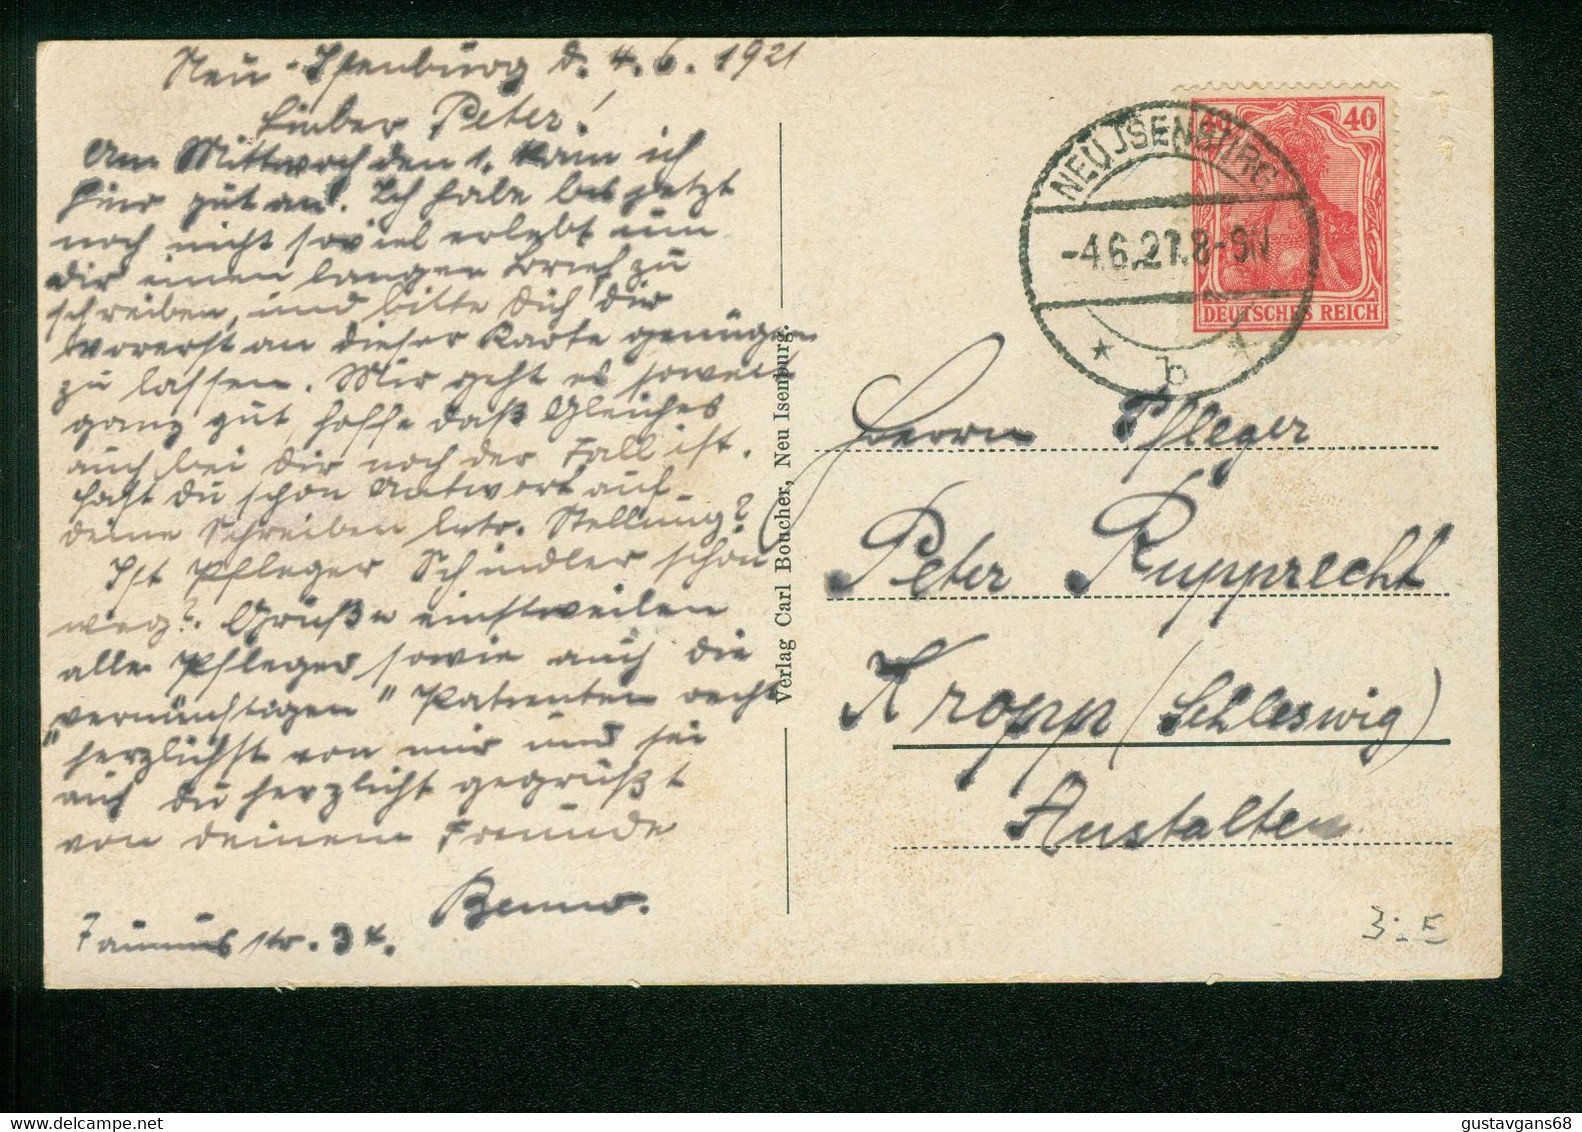 Neu-Isenburg d. 4.6.1921
Lieber Peter!
Am Mittwoch den 1. kam ich
hier gut an. Ich habe bis jetzt
noch nicht soviel erlebt um
dir einen langen Brief zu
schreiben, und bitte dich dir
vorerst an dieser Karte genügen
zu lassen. Mir geht es soweit
ganz gut, hoffe daß Gleiches
auch bei dir noch der Fall ist.
Hast du schon Antwort auf
deine Schreiben betr. Stellung?
Ist Pfleger Schindler schon
weg? Grüße einstweilen
alle Pfleger, sowie auch die
"vernünftigen" Patienten recht
herzlichst von mir und sei
auch du herzlicht gegrüßt
von deinem Freunde
Benno.
Taunusstr. 34.
Verlag Carl Boucher, Neu Isenburg.
NEU JSENBURG
-4.6.21.8-9N
* b *
40 40
DEUTSCHES REICH
Herrn Pfleger
Peter Rupprecht
Kropp (Schleswig)
Anstalten
3.- E
gustavgans68